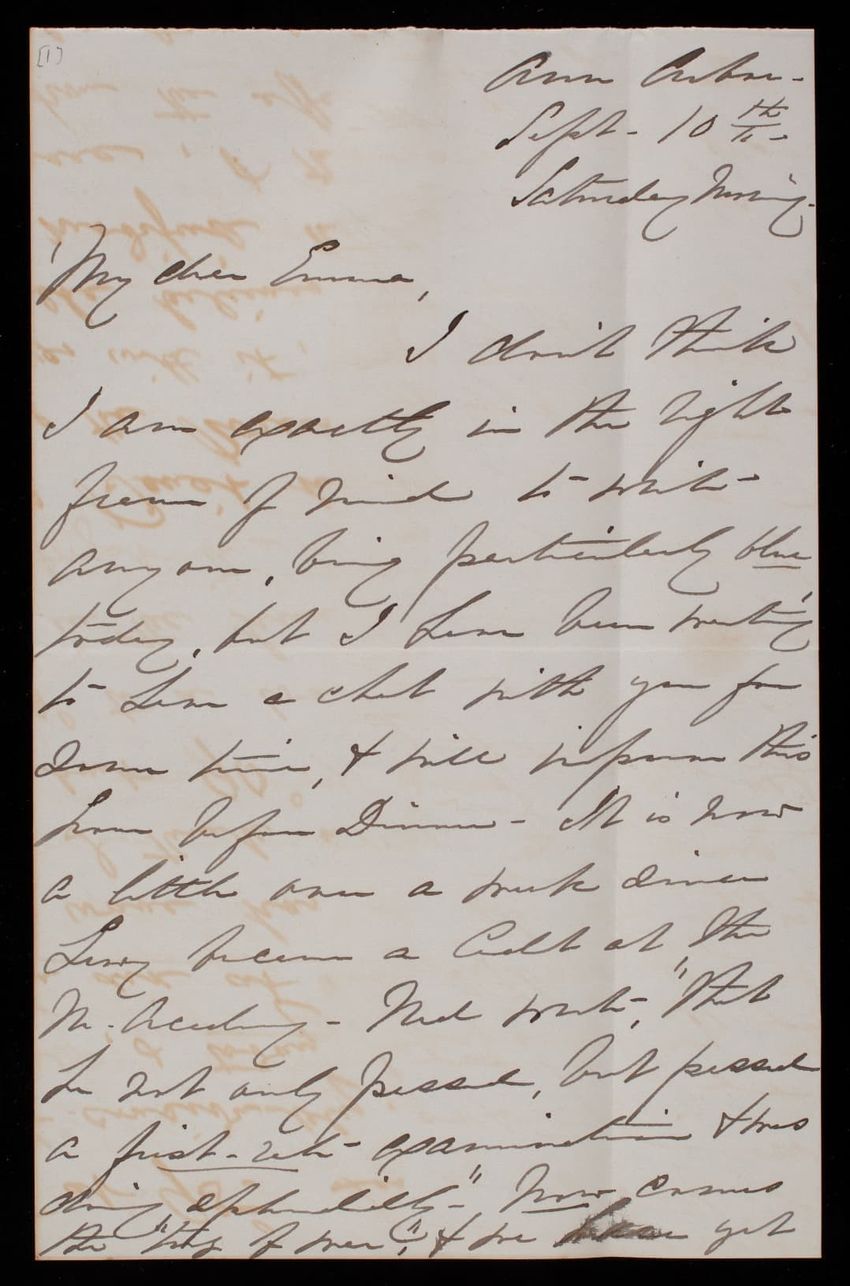 [1]
Ann Arbor -
Sept - 10th -
Saturday Morning -
My dear Emma,
I don't think
I am exactly in the right
frame of mind to write
anyone, being particularly blue
today, but I have been wanting
to have a chat with you for
some time, & will improve this
hour before Dinner - It is now
a little over a week since
Harry became a Cadet at the
N. Academy - Ned wrote, "that
he not only passed, but passed
a first-rate examination & was
doing splendidly", Now comes
the "tug of war", & we have yet